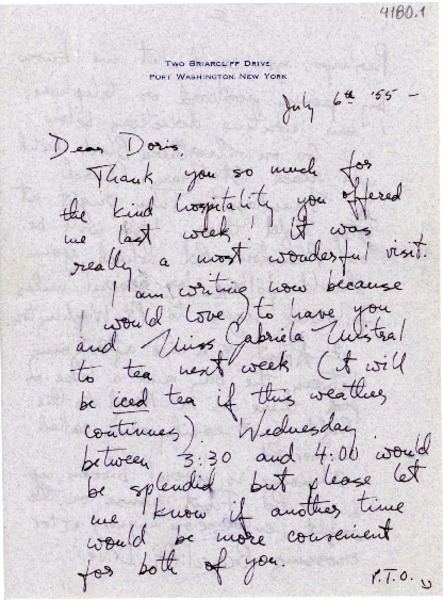 4180.1
TWO BRIARCLIFF DRIVE
PORT WASHINGTON, NEW YORK
July 6th '55 –
Dear Doris,
Thank you so much for
the kind hospitality you offered
me last week! It was
really a most wonderful visit.
I am writing now because
I would love to have you
and Miss Gabriela Mistral
to tea next week (it will
be iced tea if this weather
continues). Wednesday
between 3:30 and 4:00 would
be splendid but please let
me know if another time
would be more convenient
for both of you.
P.T.O.